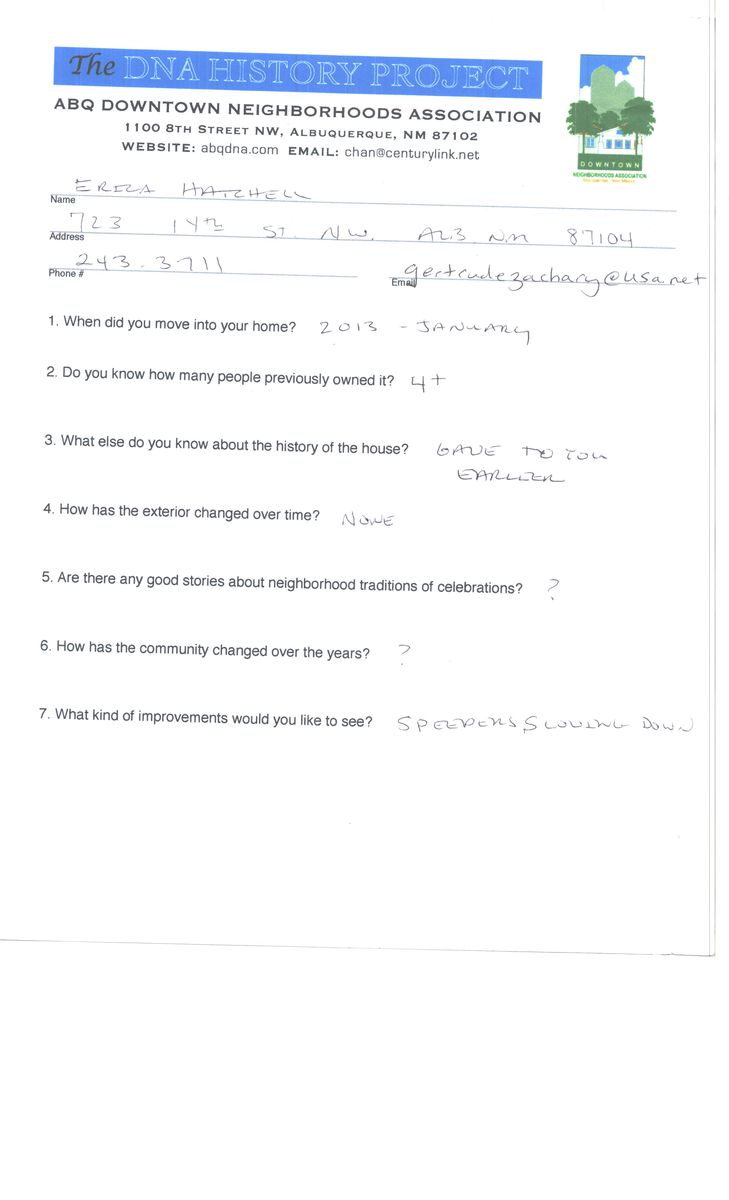 The DNA HISTORY PROJECT
ABQ DOWNTOWN NEIGHBORHOODS ASSOCIATION
1100 8TH STREET NW, ALBUQUERQUE, NM 87102
WEBSITE: abqdna.com EMAIL: chan@centurylink.net
DOWNTOWN
NEIGHBORHOODS ASSOCIATION
Name ERICA HATCHELL
Address 723 14th ST. NW. ALB NM 87104
Phone # 243.3711 Email gertrudezachary@usa.net
1. When did you move into your home? 2013 - JANUARY
2. Do you know how many people previously owned it? 4+
3. What else do you know about the history of the house? GAVE TO YOU
EARLIER
4. How has the exterior changed over time? NONE
5. Are there any good stories about neighborhood traditions of celebrations? ?
6. How has the community changed over the years? ?
7. What kind of improvements would you like to see? SPEEDERS SLOWING DOWN